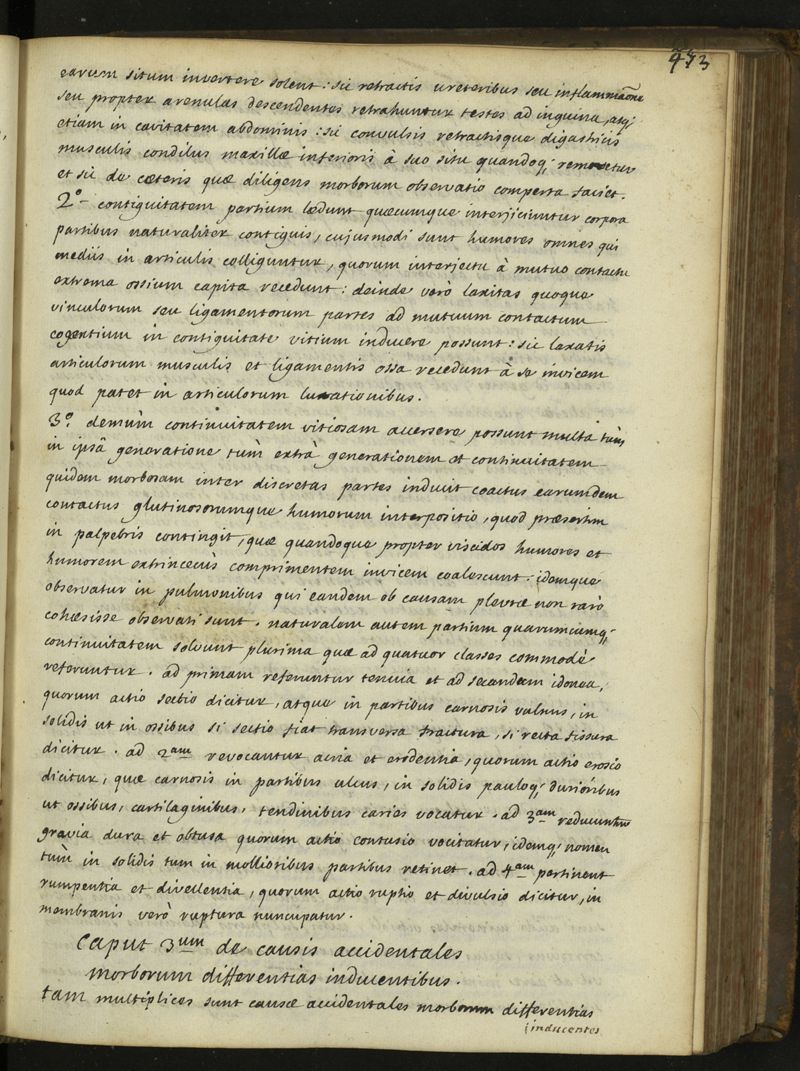 473
earum situm invertere solent: sic retractis ureteribus seu inflammaōne
seu propter arenulas descendentes retrahuntur testes ad inguina, atq;
etiam in cavitatem abdominis: sic convulsis retractisque digastricis
musculis condilus maxillæ inferioris à suo situ quandoq; removetur
et sic de cæteris quæ diligens morborum observatio comperta faciet.
2.º contiguitatem partium lædunt quæcumque interjiciuntur corpora
partibus naturaliter contiguis, cujusmodi sunt humores omnes qui
mediis in articulis colliguntur, quorum interjectu à mutuo contactu
extrema ossium capita recedunt: deinde verò laxitas quoque
vinculorum seu ligamentorum partes ad mutuum contactum
cogentium in contiguitate vitium inducere possunt: sic laxatis
articulorum musculis et ligamentis ossa recedunt à se invicem
quod patet in articulorum luxationibus.
3.º demùm continuitatem vitiosam accersere possunt multa tùm
in ipsâ generatione tùm extrà generationem et continuitatem
quidem morbosam inter discretas partes inducit coactus earumdem
contactus glutinosorumque humorum interpositio, quod præsertim
in palpebris contingit, quæ quandoque propter viscidos humores et
humorem extrinsecùs comprimentem invicem coalescunt: idemque
observatur in pulmonibus qui eandem ob causam pleuræ non rarò
cohæsisse observati sunt. naturalem autem partium quarumcumq;
continuitatem solvunt plurima quæ ad quatuor classes commodè
referuntur. ad primam referuntur tenuia et ad secandum idonea,
quorum actio sectio dicitur, atque in partibus carnosis vulnus, in
solidis ut in ossibus si sectio fiat transversa fractura, si recta fissura
dicitur. ad 2am revocantur acria et erodentia, quorum actio erosio
dicitur, quæ carnosis in partibus ulcus, in solidis pauloq; durioribus
ut ossibus, cartilaginibus, tendinibus caries vocatur. ad 3am reducuntur
gravia dura et obtusa quorum actio contusio vocitatur, idemq; nomen
tùm in solidis tum in mollioribus partibus retinet. ad 4am pertinent
rumpentia et divellentia, quorum actio ruptio et divulsio dicitur, in
membranis verò ruptura nuncupatur.
Caput 3um de causis accidentales
morborum differentias inducentibus.
tam multiplices sunt causæ accidentales morborum differentias
inducentes